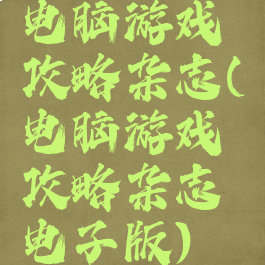 电脑游戏
攻略杂志(
电脑游戏
攻略杂志
电子版)